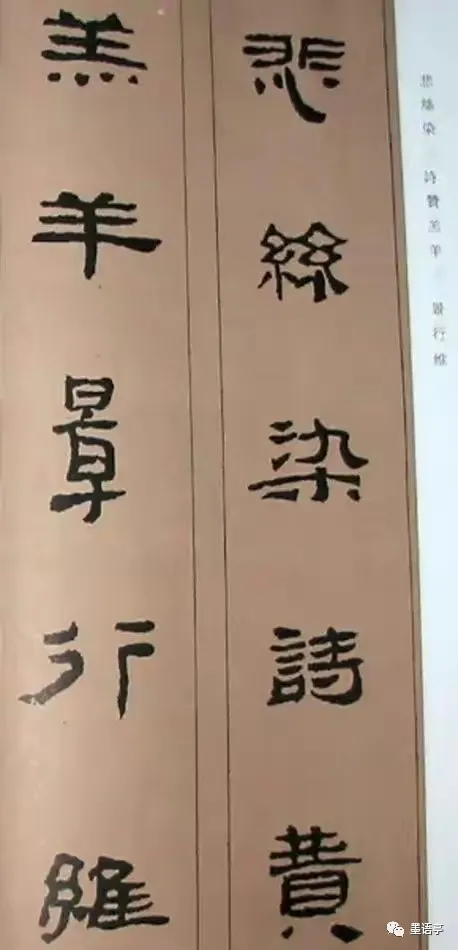 悲絲染詩贊
羔羊景行維
悲絲染 詩贊羔羊 景行維
墨语亭